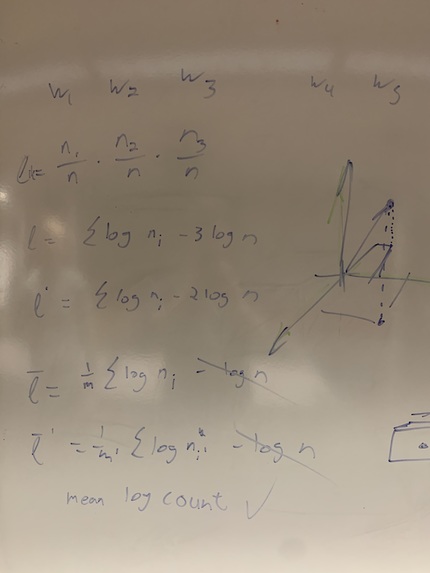 w₁ w₂ w₃ w₄ w₅
n₁/n · n₂/n · n₃/n
l = Σ log nᵢ - 3 log n
l' = Σ log nᵢ - 2 log n
l̅ = 1/m Σ log nᵢ - log n
l̅' = 1/m' Σ log nᵢ' - log n
mean log count ✓